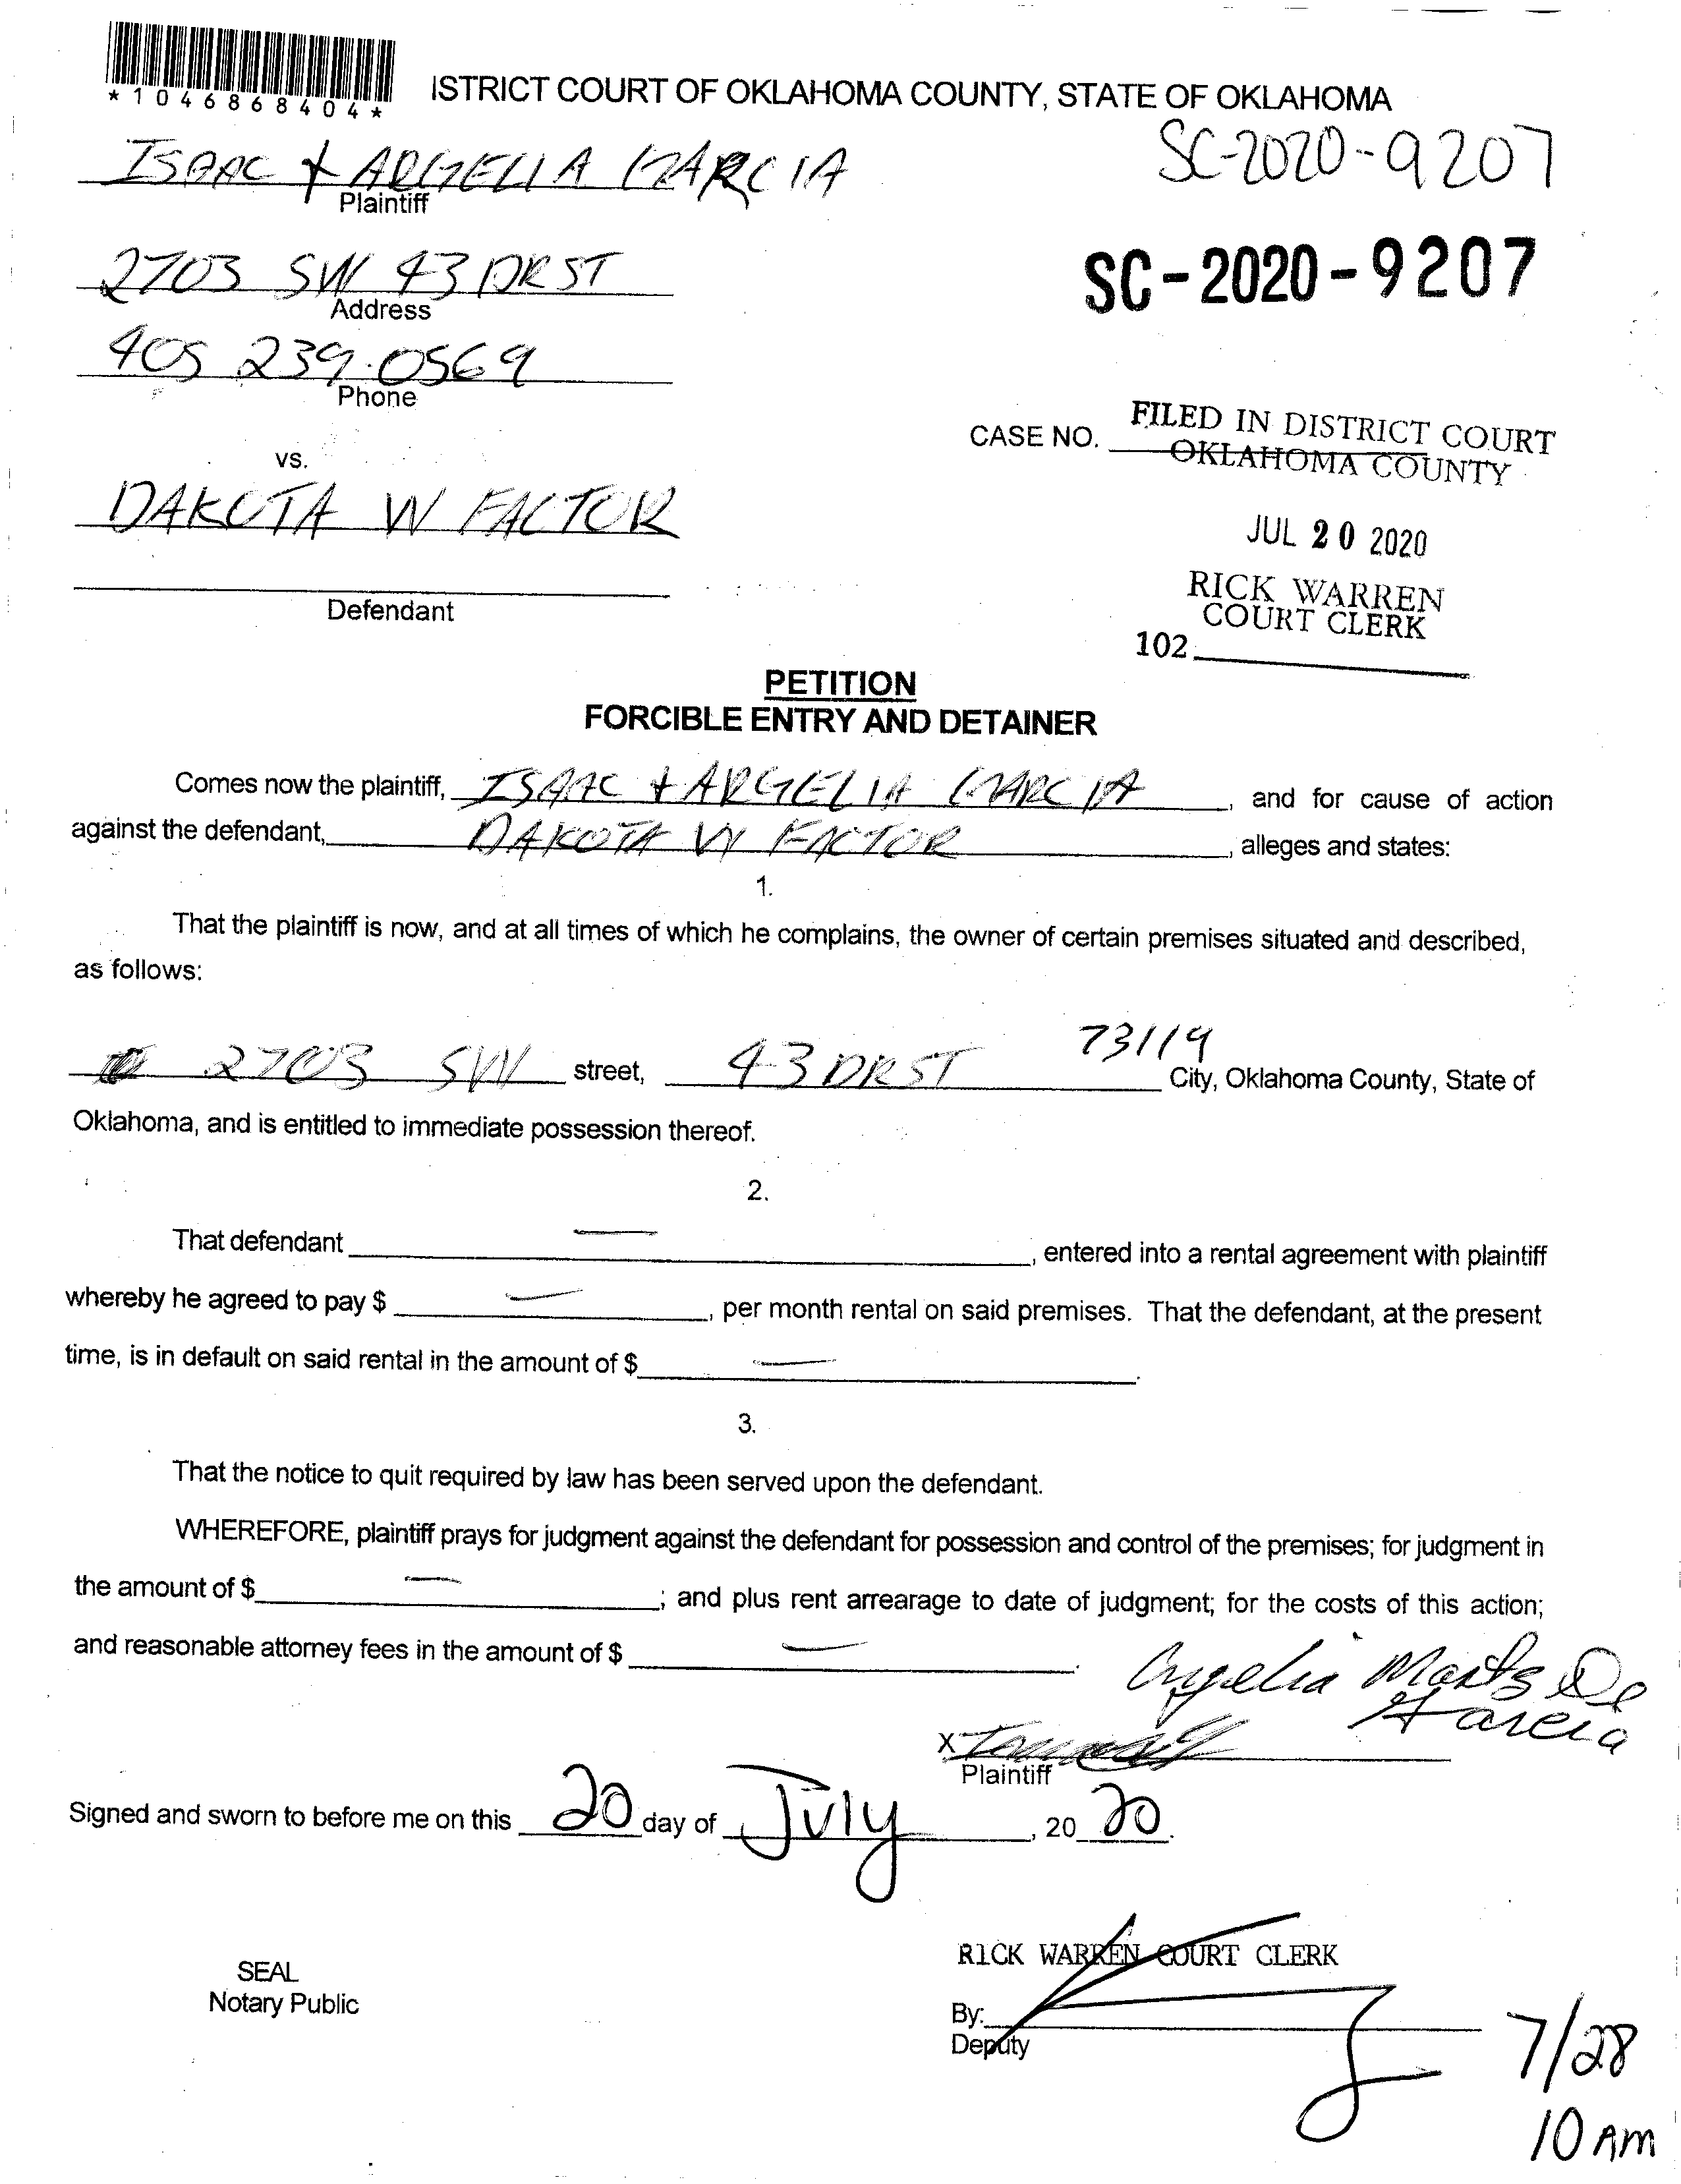 *1046868404*
ISTRICT COURT OF OKLAHOMA COUNTY, STATE OF OKLAHOMA
ISAAC + ARGELIA GARCIA
Plaintiff
SC-2020-9207
2703 SW 43 DR ST
Address
SC-2020-9207
405 239-0569
Phone
CASE NO.
FILED IN DISTRICT COURT
OKLAHOMA COUNTY
vs.
DAKOTA W FACTOR
JUL 20 2020
Defendant
RICK WARREN
COURT CLERK
102
PETITION
FORCIBLE ENTRY AND DETAINER
Comes now the plaintiff, ISAAC + ARGELIA GARCIA, and for cause of action
against the defendant, DAKOTA W FACTOR, alleges and states:
1.
That the plaintiff is now, and at all times of which he complains, the owner of certain premises situated and described,
as follows:
2703 SW street, 43 DR ST 73119 City, Oklahoma County, State of
Oklahoma, and is entitled to immediate possession thereof.
2.
That defendant —, entered into a rental agreement with plaintiff
whereby he agreed to pay $ —, per month rental on said premises. That the defendant, at the present
time, is in default on said rental in the amount of $ —.
3.
That the notice to quit required by law has been served upon the defendant.
WHEREFORE, plaintiff prays for judgment against the defendant for possession and control of the premises; for judgment in
the amount of $ —; and plus rent arrearage to date of judgment; for the costs of this action;
and reasonable attorney fees in the amount of $ —.
Argelia De
Garcia
X
Plaintiff
Signed and sworn to before me on this 20 day of July, 2020.
RICK WARREN COURT CLERK
SEAL
Notary Public
By:
Deputy
7/28
10 AM